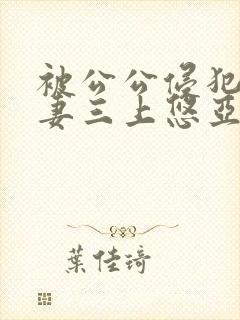 被公公侵犯
妻三上悠亞
葉佳琦